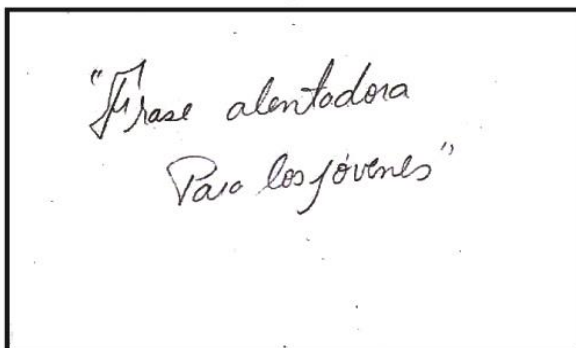 "Frase alentadora
Para los jóvenes"